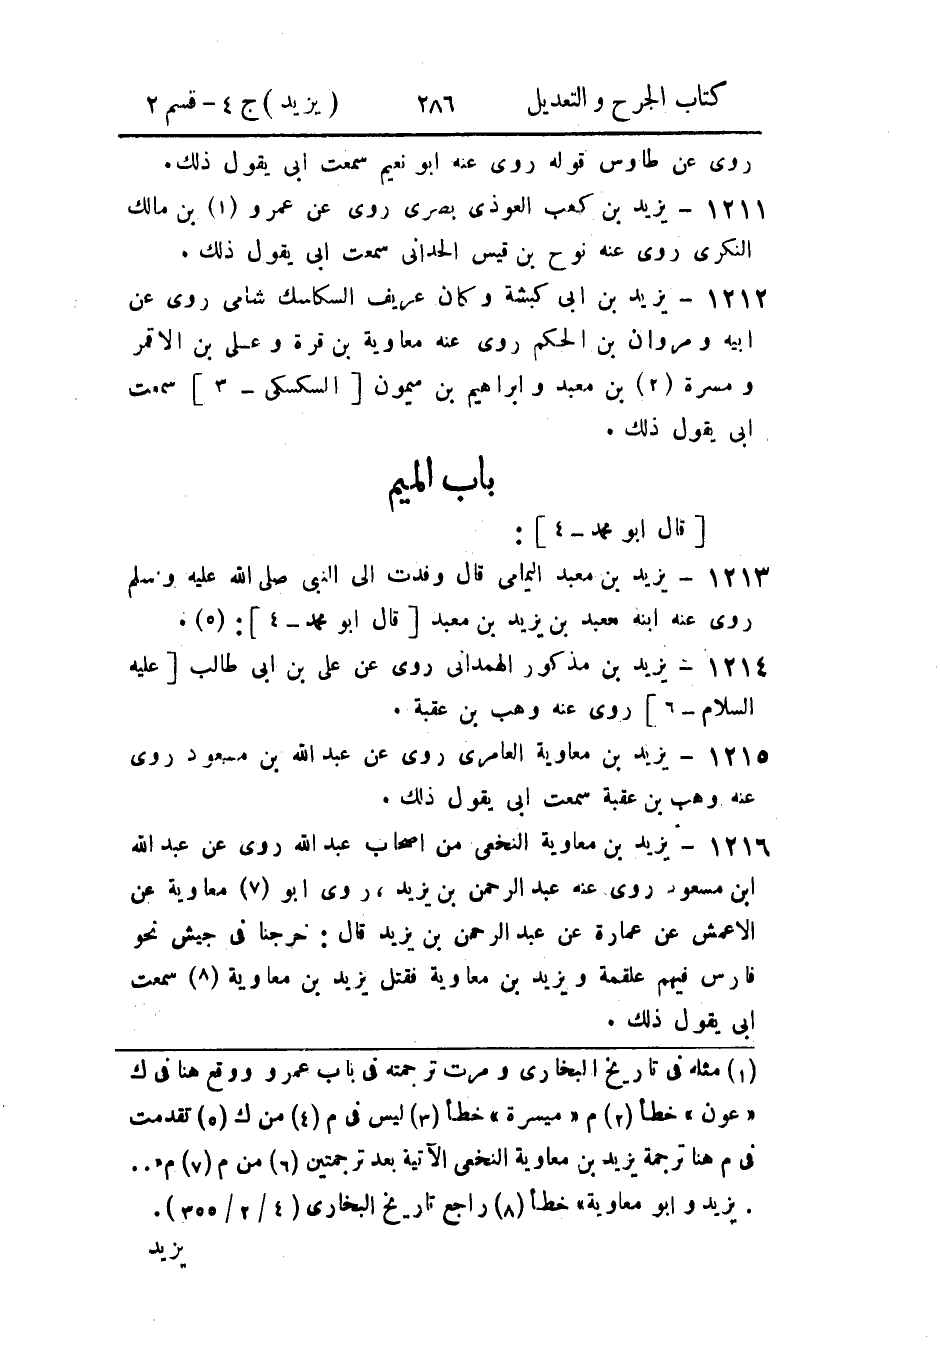 كتاب الجرح و التعديل ٢٨٦ ( يزيد ) ج ٤ - قسم ٢
روى عن طاوس قوله روى عنه ابو نعيم سمعت ابى يقول ذلك .
١٢١١ - يزيد بن كعب العوذى بصرى روى عن عمرو (١) بن مالك
النكرى روى عنه نوح بن قيس الحدانى سمعت ابى يقول ذلك .
١٢١٢ - يزيد بن ابى كبشة وكان عريف السكاسك شامى روى عن
ابيه و مروان بن الحكم روى عنه معاوية بن قرة و على بن الاقمر
و مسرة (٢) بن معبد و ابراهيم بن ميمون [ السكسكى - ٣ ] سمعت
ابى يقول ذلك .
باب الميم
[ قال ابو محمد - ٤ ] :
١٢١٣ - يزيد بن معبد اليمامى قال وفدت الى النبى صلى الله عليه وسلم
روى عنه ابنه معبد بن يزيد بن معبد [ قال ابو محمد - ٤ ] : (٥) .
١٢١٤ - يزيد بن مذكور الهمدانى روى عن على بن ابى طالب [ عليه
السلام - ٦ ] روى عنه وهب بن عقبة .
١٢١٥ - يزيد بن معاوية العامرى روى عن عبد الله بن مسعود روى
عنه وهب بن عقبة سمعت ابى يقول ذلك .
١٢١٦ - يزيد بن معاوية النخعى من اصحاب عبد الله روى عن عبد الله
ابن مسعود روى عنه عبد الرحمن بن يزيد ، روى ابو (٧) معاوية عن
الاعمش عن عمارة عن عبد الرحمن بن يزيد قال : خرجنا فى جيش نحو
فارس فيهم علقمة و يزيد بن معاوية فقتل يزيد بن معاوية (٨) سمعت
ابى يقول ذلك .
(١) مثله فى تاريخ البخارى و مرت ترجمته فى باب عمرو و وقع هنا فى ك
« عون » خطأ (٢) م « ميسرة » خطأ (٣) ليس فى م (٤) من ك (٥) تقدمت
فى م هنا ترجمة يزيد بن معاوية النخعى الآتية بعد ترجمتين (٦) من م (٧) م « . .
. يزيد و ابو معاوية » خطأ (٨) راجع تاريخ البخارى ( ٤ / ٢ / ٣٥٥ ) .
يزيد